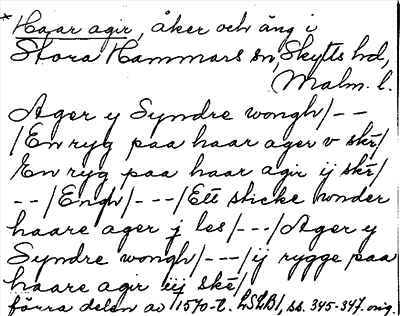 *Haar agir, åker och äng i
Stora Hammars sn, Skytts hd,
Malm. l.
Ager y Syndre wongh/--
/En ryg paa haar ager v skē/
En ryg paa haar agir ij skē/
--/Engh/---/Ett sticke wnder
haare ager j les/---/Ager y
Syndre wongh/---/ij rygge paa
haare agir iij skē/
förra delen av 1570-t. LSLB1, ss. 345-347. orig.